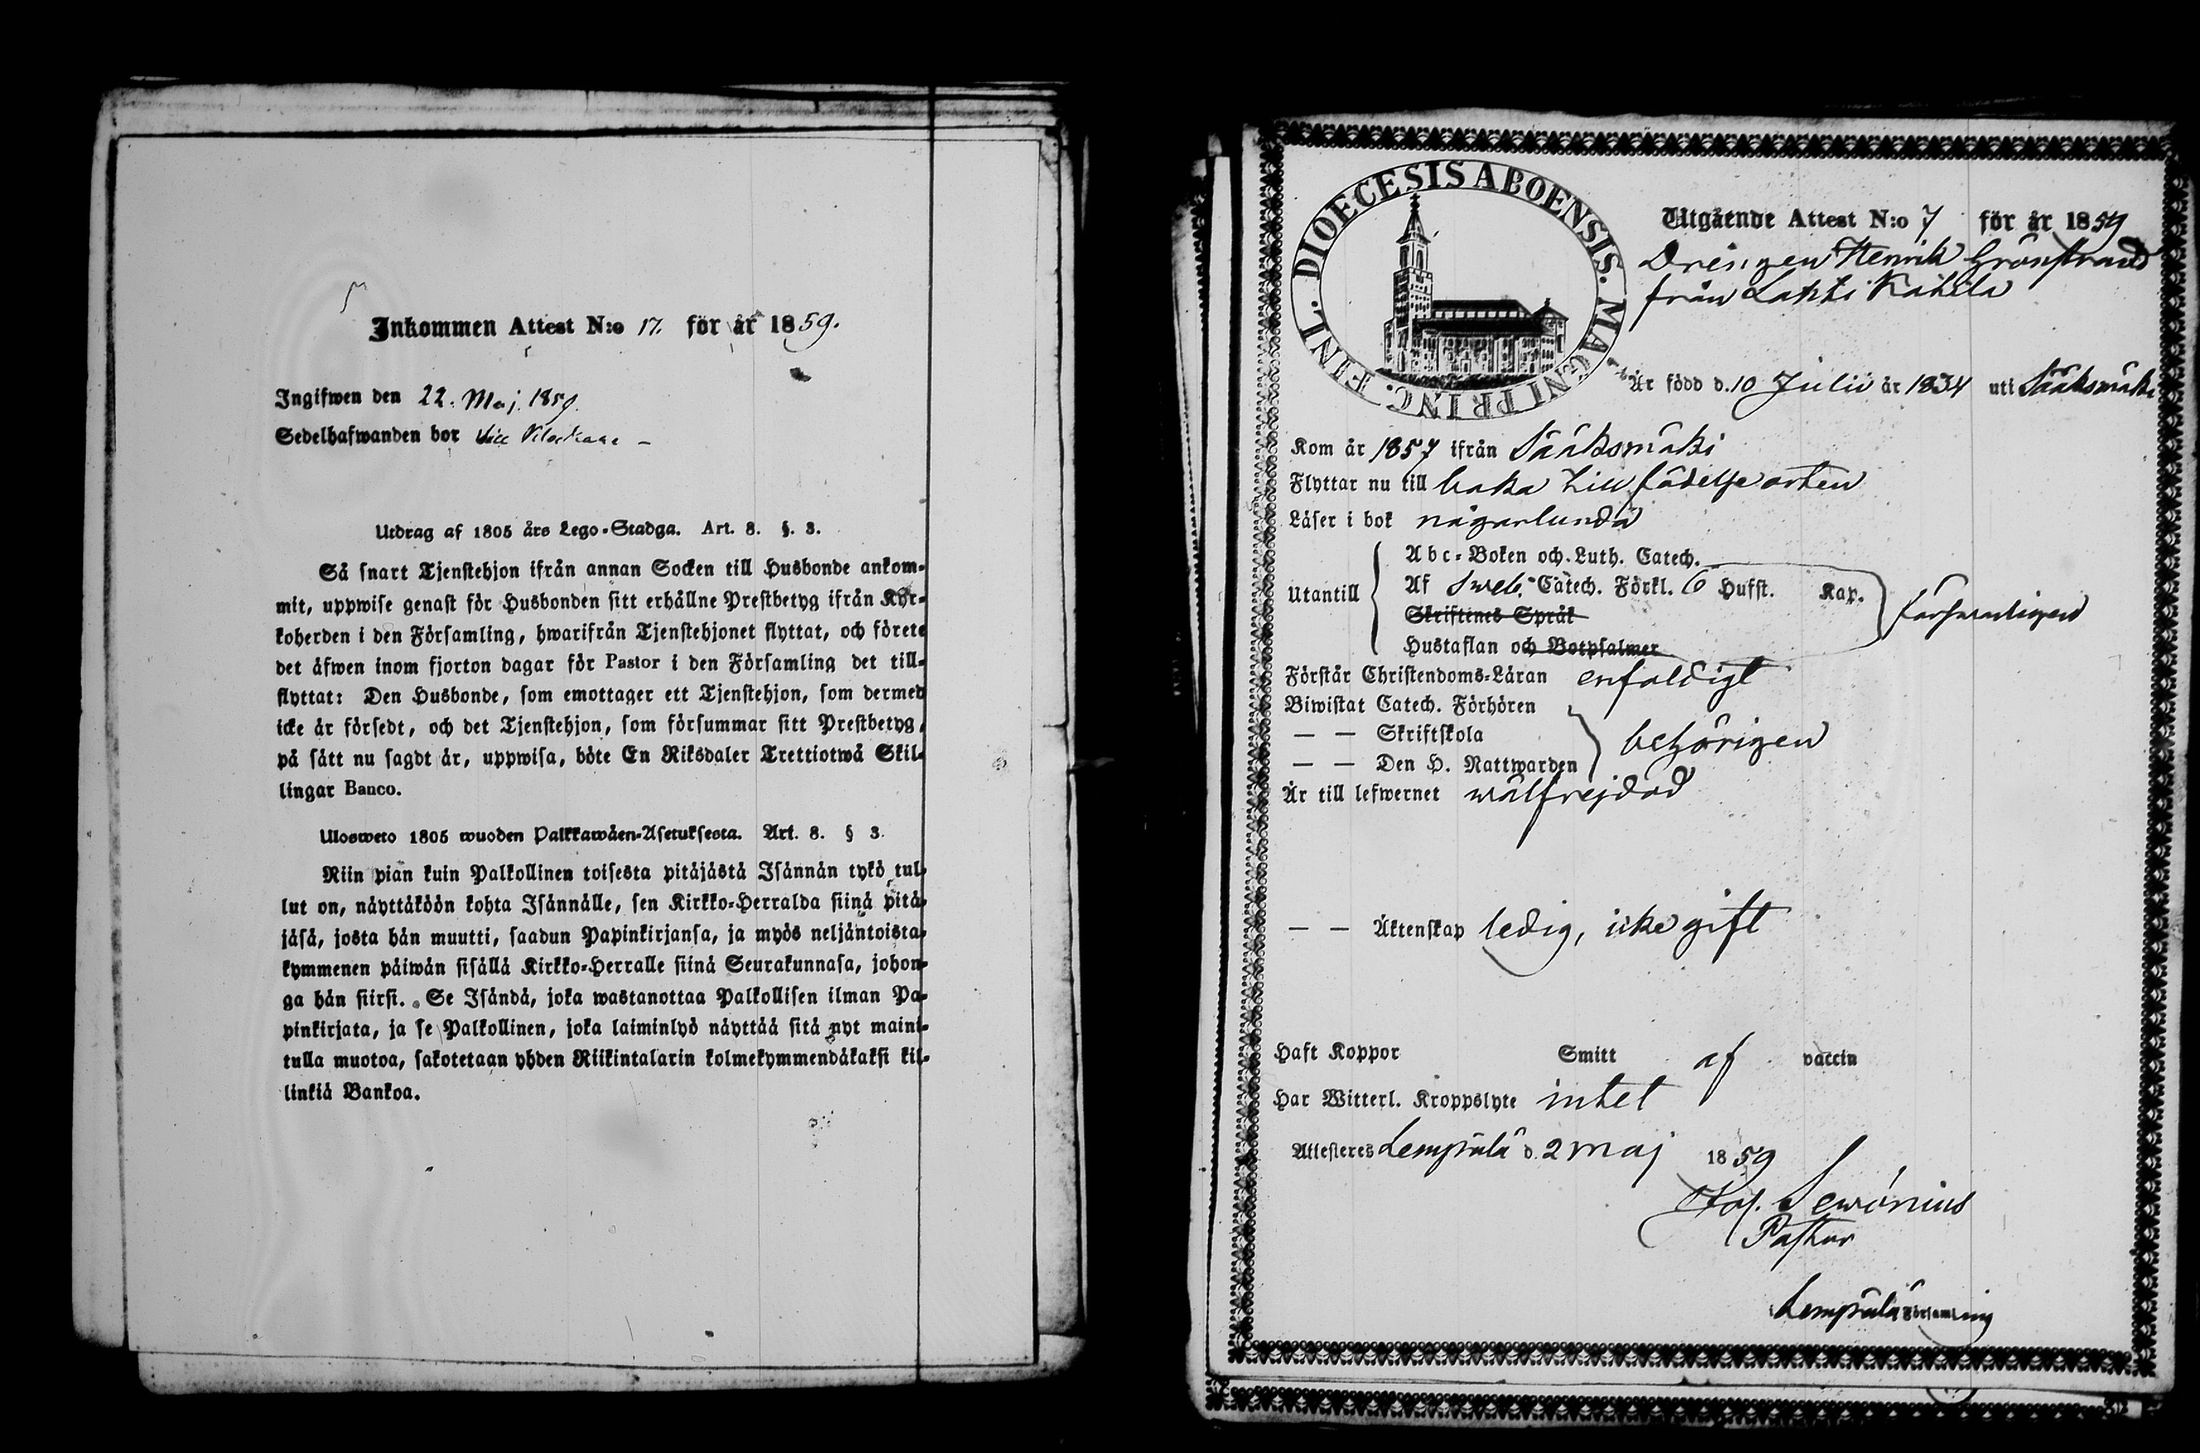 Inkommen Attest N:o 17. för år 1859.
Ingifwen den 22. Maj. 1859.
Sedelhafwanden bor
Utdrag af 1805 års Lego-Stadga. Art. 8. §. 3.
Så snart Tjenstehjon ifrån annan Socken till Husbonde ankom-
mit, uppwise genast för Husbonden sitt erhållne Prestbetyg ifrån Kyr-
koherden i den Församling, hwarifrån Tjenstehjonet flyttat, och förete
det äfwen inom fjorton dagar för Pastor i den Församling det till-
flyttat: Den Husbonde, som emottager ett Tjenstehjon, som dermed
icke är försedt, och det Tjenstehjon, som försummar sitt Prestbetyg,
på sätt nu sagdt är, uppwisa, böte En Riksdaler Trettiotwå Skil-
lingar Banco.
Ulosweto 1805 wuoden Palkkawäen-Asetuksesta. Art. 8. § 3.
Niin pian kuin Palkollinen toisesta pitäjästä Isännän tykö tul-
lut on, näyttäköön kohta Isännälle, sen Kirkko-Herralda siinä pitä-
jäsä, josta hän muutti, saadun Papinkirjansa, ja myös neljäntoista-
kymmenen päiwän sisällä Kirkko-Herralle siinä Seurakunnasa, johon-
ga hän siirsi. Se Isändä, joka wastanottaa Palkollisen ilman Pa-
pinkirjata, ja se Palkollinen, joka laiminlyö näyttää sitä nyt maini-
tulla muotoa, sakotetaan yhden Riikintalarin kolmekymmendäkaksi kil-
linkiä Bankoa.
DIOECESIS ABOENSIS. MAGNI PRINC. FINL.
Utgående Attest N:o 7 för år 1859
Drängen Henrik Grönstrand
från Lakki Kahila
Är född d. 10 Julii år 1834 uti Sääksmäki
Kom år 1857 ifrån Sääksmäki
Flyttar nu till baka till födelse orten
Läser i bok någorlunda
Utantill
Abc-Boken och Luth. Catech.
Af Sweb. Catech. Förkl. 6 Hufst. Kap.
Skriftenes Språk
Hustaflan och Botpsalmer
försvarligen
Förstår Christendoms-Läran enfaldigt
Biwistat Catech. Förhören
— — Skriftskola
— — Den H. Nattwarden
behörigen
Är till lefwernet wälfrejdad
— — Äktenskap ledig, icke gift
Haft Koppor Smitt af vaccin
Har Witterl. Kroppslyte intet
Attesteres Lempälä d. 2 maj 1859
Sewónius
Pastor
Lempälä Församling